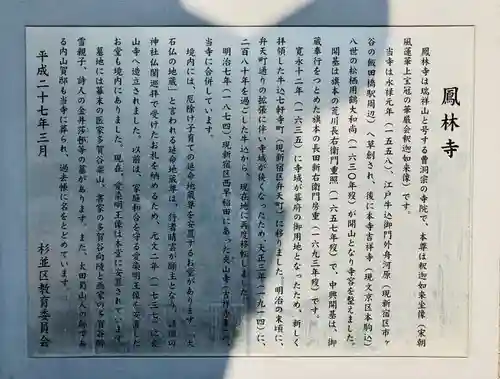 鳳林寺
鳳林寺は瑞祥山と号する曹洞宗の寺院で、本尊は釈迦如来坐像(宋朝
風蓮華上宝冠の華厳会釈迦如来像)です。
当寺は永禄元年(一五五八)、江戸牛込御門外舟河原(現新宿区市ヶ
谷の飯田橋駅周辺)へ草創され、後に本寺吉祥寺(現文京区本駒込)
八世の松栖用鶴大和尚(一六三〇年歿)が開山となり寺容を整えました。
開基は旗本の荒川長右衛門重照(一六五七年歿)で、中興開基は、御
蔵奉行をつとめた旗本の長田新右衛門房重(一六九三年歿)です。
寛永十二年(一六三五)に寺域が幕府の御用地となったため、新しく
拝領した牛込七軒寺町(現新宿区弁天町)に移りました。明治の末頃に、
弁天町通りの拡張に伴い寺域が狭くなったため、大正三年(一九一四)に、
二百八十年を過ごした牛込から、現在地に再度移転しました。
明治七年(一八七四)、現新宿区西早稲田にあった
当寺に合併しています。
境内には、厄除け子育ての延命地蔵尊を安置するお堂があります。
石仏の地蔵」と言われる延命地蔵尊は、行者晴雲が願主となり、諸国の
神社仏閣巡拝で受けたお札を納めるため、元文二年(一七三七)に
山寺へ造立されました。以前は、家庭和合を守る愛染明王像を安置した
お堂も境内にありました。現在、愛染明王像は本堂に安置されています。
墓地には幕末の医家多賀谷楽山、書家の多賀谷向陵と画家の多賀谷
雪親子、詩人の金井莎邨等の墓があります。また、太田蜀山人の師であ
る内山賀邸も当寺に葬られ、過去帳に名をとどめています。
平成二十七年三月
杉並区教育委員会